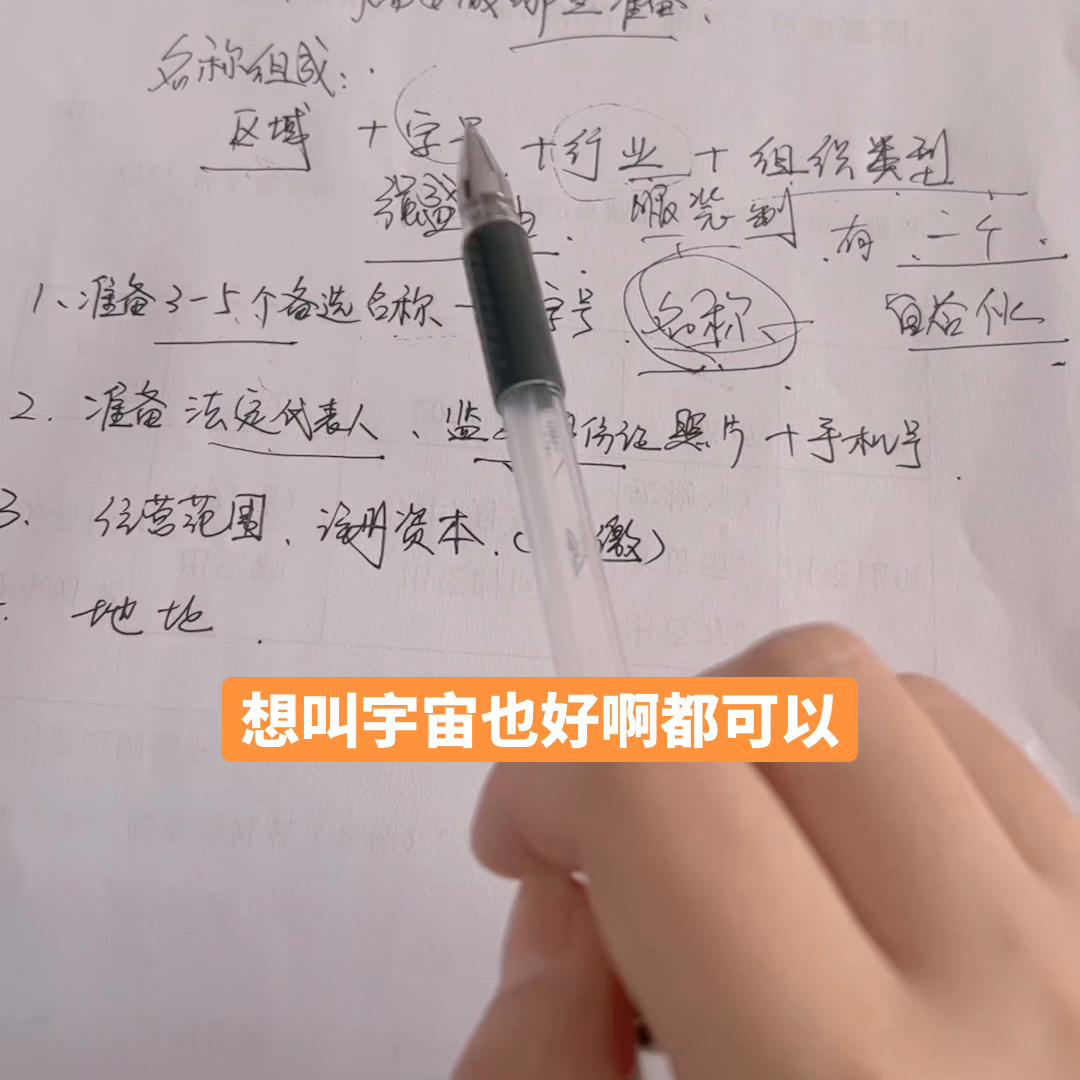 哪些准备？
名称组成：
区域 + 字号 + 行业 + 组织类型
服装制 有 二个
1、准备3-5个备选名称 字号 名称 宜合伙
2. 准备 法定代表人、监 身份证照片+手机号
3. 经营范围、注册资本.( 缴)
地址.
想叫宇宙也好啊都可以